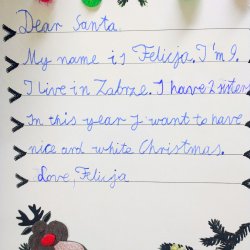 Dear Santa.
My name is Felicja. I'm 9.
I live in Zabrze. I have 2 sisters
In this year I want to have
nice and white Christmas.
Love, Felicja